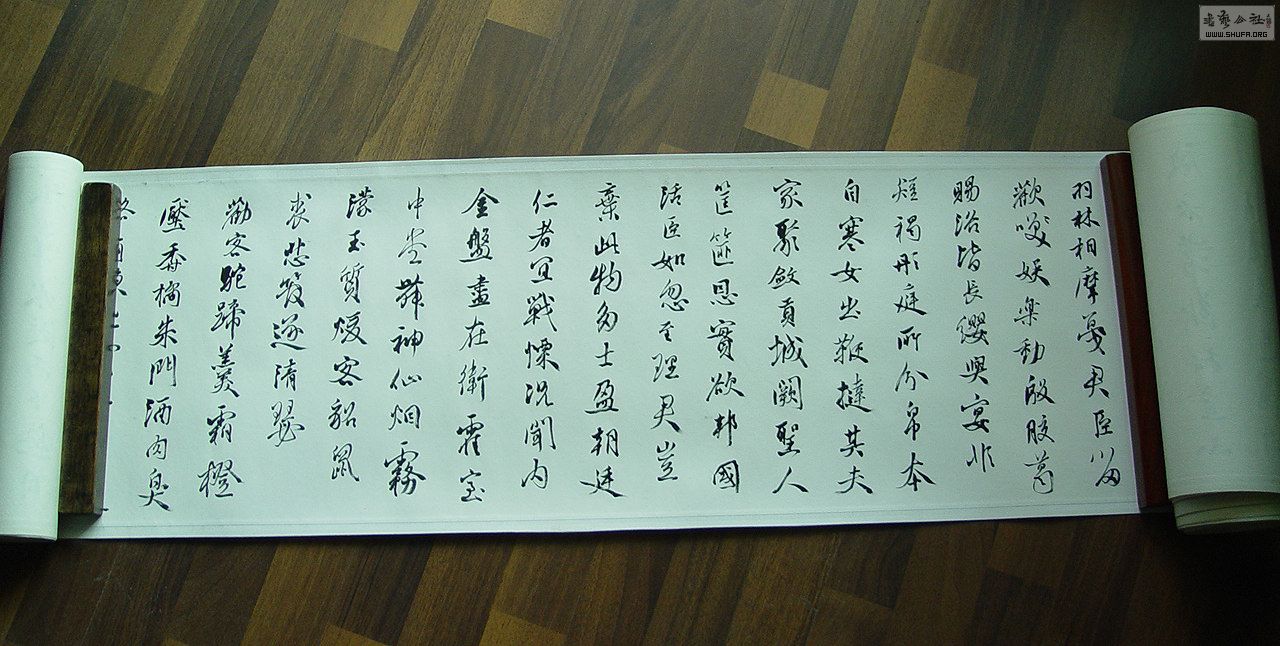 羽林相摩戛君臣留
歡妖樂動殷膠葛
賜浴皆長纓與宴非
短褐彤庭所分帛本
自寒女出鞭撻其夫
家聚斂貢城闕聖人
筐篚恩實欲邦國
活臣如忽至理君豈
棄此物多士盈朝廷
仁者宜戰慄況聞内
金盤盡在衛霍室
中堂舞神仙烟霧
濛玉質煖客貂鼠
裘悲管逐清瑟
勸客駝蹄羹霜橙
壓香橘朱門酒肉臭
書藝公社
WWW.SHUFA.ORG